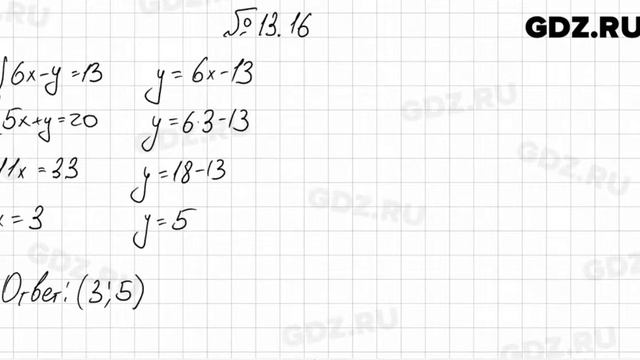 № 13.16
GDZ.RU
6x-y=13
y=6x-13
5x+y=20
y=6·3-13
11x=33
y=18-13
x=3
y=5
Ответ: (3;5)
GDZ.RU
GDZ.RU
GDZ.RU
GDZ.RU
GDZ.RU
GDZ.RU
GDZ.RU